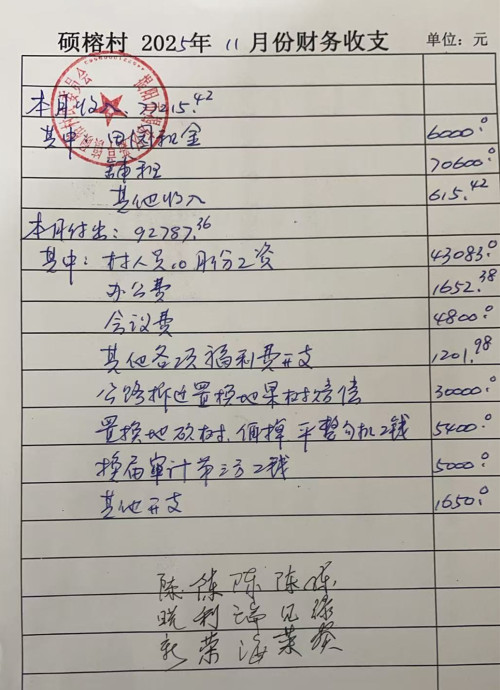 硕榕村 2025年 11月份财务收支 单位：元
本月收入：77215.42
其中：田园租金 6000.0
铺租 70600.0
其他收入 615.42
本月付出：92787.36
其中：村人员10月份工资 43083.0
办公费 1652.38
会议费 4800.0
其他各项福利费开支 1201.98
公路拆迁置换地果树赔偿 30000.0
置换地砍树、平整勾机工钱 5400.0
换届审计第三方工钱 5000.0
其他开支 1650.0
陈 陈 陈 陈
晓 利 端
新 荣 海 荣